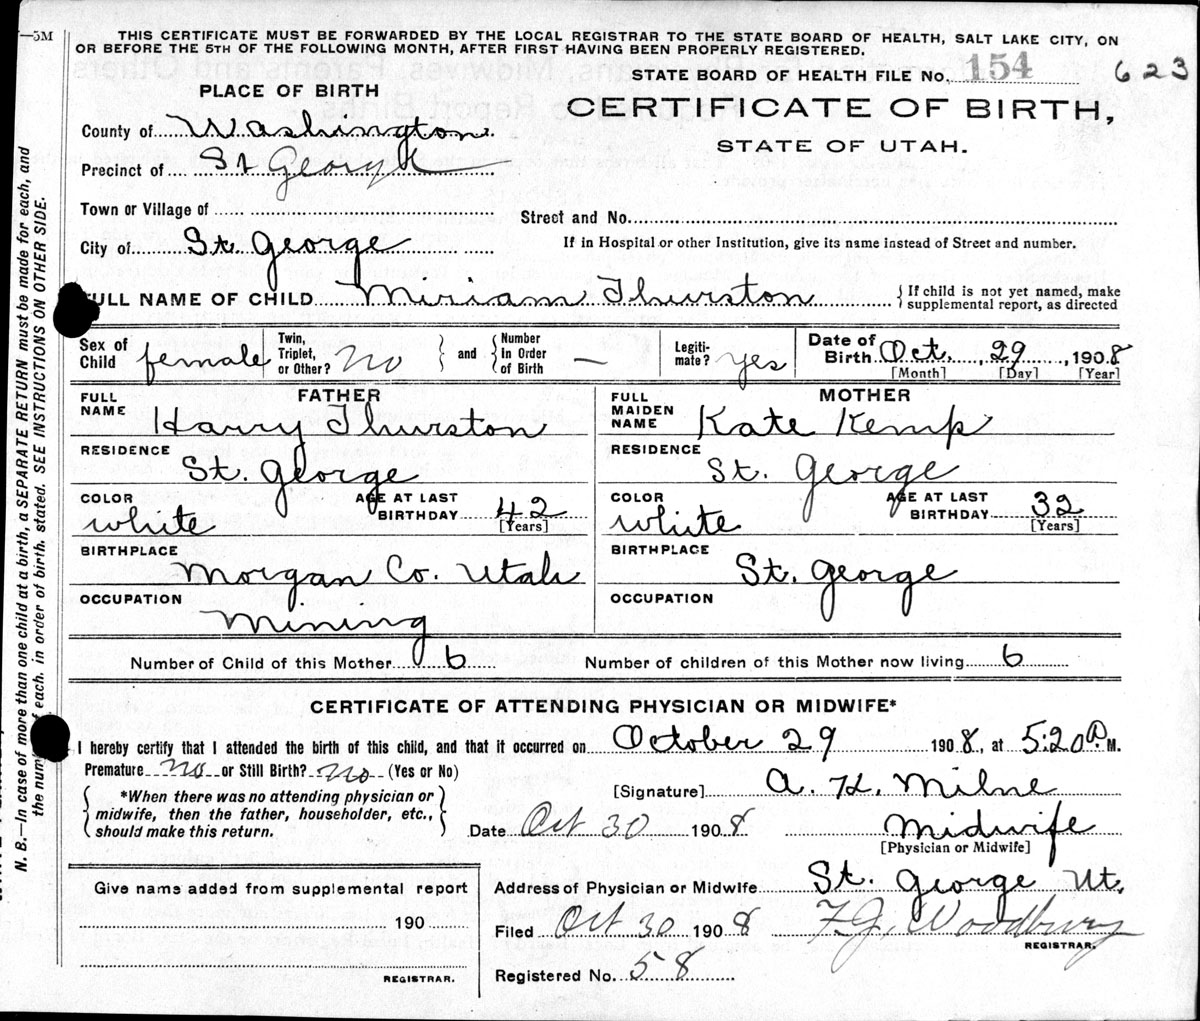 —5M
THIS CERTIFICATE MUST BE FORWARDED BY THE LOCAL REGISTRAR TO THE STATE BOARD OF HEALTH, SALT LAKE CITY, ON
OR BEFORE THE 5TH OF THE FOLLOWING MONTH, AFTER FIRST HAVING BEEN PROPERLY REGISTERED.
STATE BOARD OF HEALTH FILE No. 154 623
PLACE OF BIRTH
CERTIFICATE OF BIRTH,
STATE OF UTAH.
County of Washington
Precinct of St George
Town or Village of
Street and No.
City of St. George
If in Hospital or other Institution, give its name instead of Street and number.
FULL NAME OF CHILD Miriam Thurston { If child is not yet named, make
supplemental report, as directed
Sex of Child female
Twin, Triplet, or Other? No } and { Number In Order of Birth —
Legiti-mate? yes
Date of Birth Oct. 29, 1908
[Month] [Day] [Year]
FATHER
FULL NAME Harry Thurston
RESIDENCE St. George
COLOR white AGE AT LAST BIRTHDAY 42
[Years]
BIRTHPLACE Morgan Co. Utah
OCCUPATION Mining
MOTHER
FULL MAIDEN NAME Kate Kemp
RESIDENCE St. George
COLOR white AGE AT LAST BIRTHDAY 32
[Years]
BIRTHPLACE St. George
OCCUPATION
Number of Child of this Mother 6 Number of children of this Mother now living 6
CERTIFICATE OF ATTENDING PHYSICIAN OR MIDWIFE*
I hereby certify that I attended the birth of this child, and that it occurred on October 29 1908, at 5:20 P. M.
Premature No or Still Birth? No (Yes or No)
{ *When there was no attending physician or
midwife, then the father, householder, etc.,
should make this return. }
[Signature] A. H. Milne
Date Oct 30 1908 Midwife
[Physician or Midwife]
Give name added from supplemental report
190
REGISTRAR.
Address of Physician or Midwife St. George Ut.
Filed Oct 30 1908 F.J. Woodbury
REGISTRAR.
Registered No. 58
N. B.—In case of more than one child at a birth, a SEPARATE RETURN must be made for each, and
the num of each, in order of birth, stated. SEE INSTRUCTIONS ON OTHER SIDE.